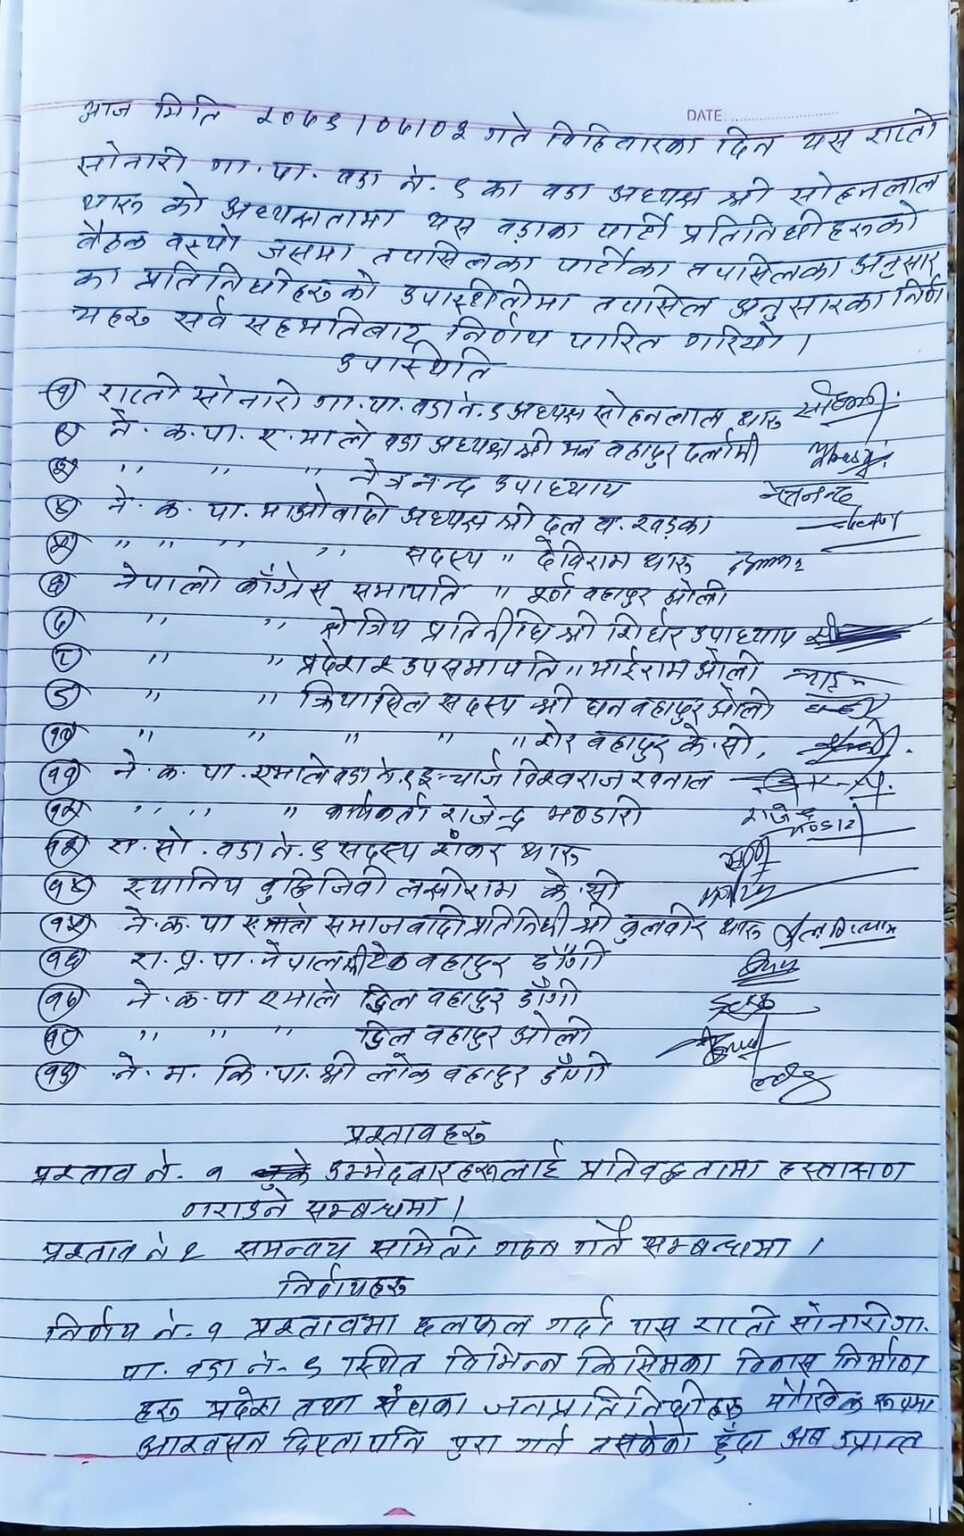 DATE
आज मिति २०७९।०७।०३ गते विहिवारका दिन यस राप्ती
सोनारी गा. पा. वडा नं. ९ का वडा अध्यक्ष श्री सोहनलाल
थारु को अध्यक्षतामा यस वडाका पार्टी प्रतिनिधीहरुको
बैठक बस्यो जसमा तपसिलका पार्टीका तपसिलका अनुसार
का प्रतिनिधीहरुको उपस्थितीमा तपसिल अनुसारका निर्ण
यहरु सर्व सहमतिबाट निर्णय पारित गरियो।
उपस्थिति
१ राप्ती सोनारी गा. पा. वडा नं. ९ अध्यक्ष सोहनलाल थारु
२ ने. क. पा. ए. माले वडा अध्यक्ष श्री मन बहादुर दर्लामी
३ ,, ,, ,, नेत्रनन्द उपाध्याय नेत्रनन्द
४ ने. क. पा. माओवादी अध्यक्ष श्री दल ब. खड्का
५ ,, ,, ,, ,, सदस्य ,, देविराम थारु
६ नेपाली काँग्रेस सभापति ,, पूर्ण बहादुर ओली
७ ,, ,, क्षेत्रिय प्रतिनीधि श्री शिर्धर उपाध्याय
८ ,, ,, प्रदेश २ उपसभापति ,, भाईराम ओली
९ ,, ,, क्रियासिल सदस्य श्री धन बहादुर ओली
१० ,, ,, ,, ,, ,, शेर बहादुर के. सी.
११ ने. क. पा. एमाले वडा नं. ९ इन्चार्ज विश्वराज खनाल
१२ ,, ,, ,, ,, कार्यकर्ता राजेन्द्र भण्डारी
१३ रा. सो. वडा नं. ९ सदस्य शंकर थारु
१४ स्थानिय बुद्धिजिवी लसीराम के. सी
१५ ने. क. पा एमाले समाजवादी प्रतिनिधी श्री कुलवीर थारु
१६ रा. प्र. पा. नेपाल श्री टेक बहादुर डाँगी
१७ ने. क. पा एमाले डिल बहादुर डाँगी
१८ ,, ,, ,, डिल बहादुर ओली
१९ ने. म. कि. पा. श्री लोक बहादुर डाँगी
प्रस्तावहरु
प्रस्ताव नं. १ उम्मेदवारहरुलाई प्रतिवद्धतामा हस्ताक्षण
गराउने सम्बन्धमा।
प्रस्ताव नं २ समन्वय समिती गठन गर्ने सम्बन्धमा।
निर्णयहरु
निर्णय नं. १ प्रस्तावमा छलफल गर्दा यस राप्ती सोनारी गा.
पा. वडा नं. ९ स्थित विभिन्न किसिमका विकास निर्माण
हरु प्रदेश तथा संघका जनप्रतिनिधीहरु मौखिक रूपमा
आश्वसन दिएतापनि पुरा गर्न नसकेको हुँदा अब उप्रान्त